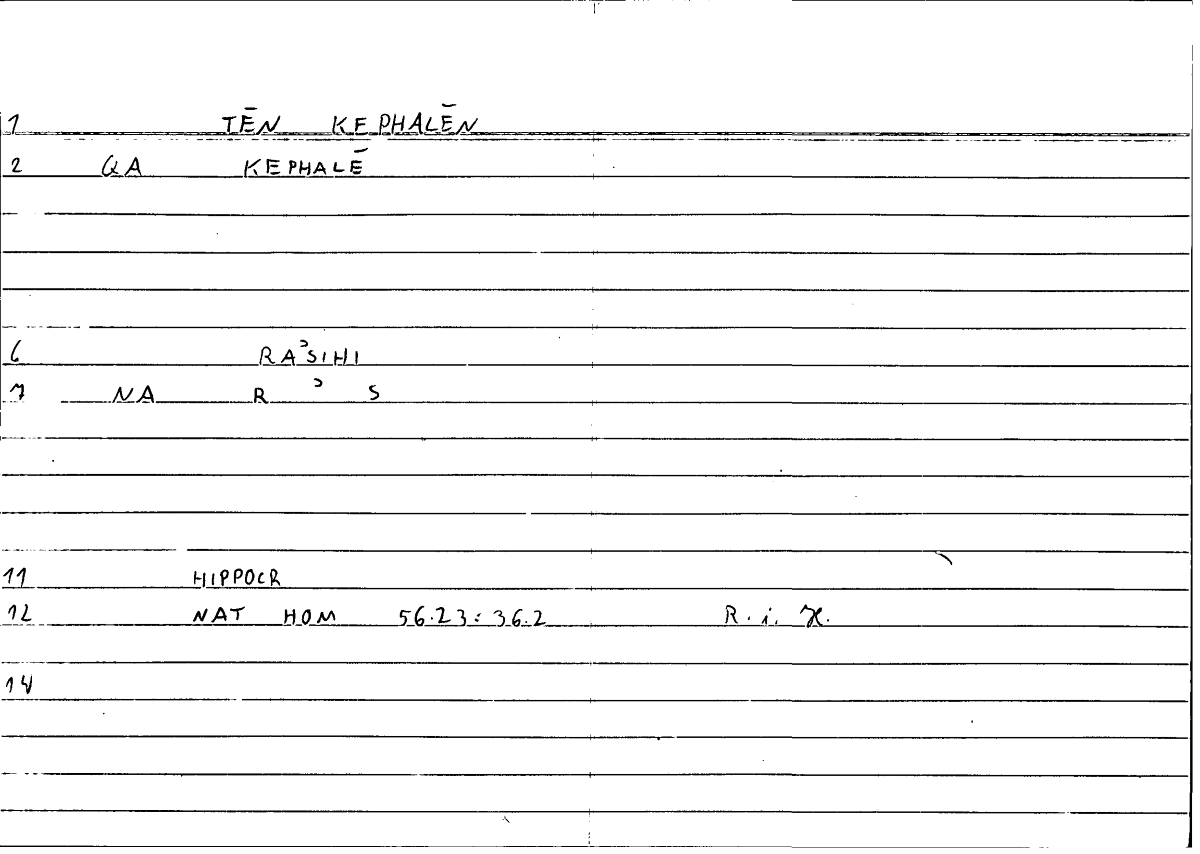 1 TĒN KEPHALĒN
2 QA KEPHALĒ
6 RAʾSIHI
7 NA R ʾ S
11 HIPPOCR
12 NAT HOM 56.23:36.2 R. i. H.
14